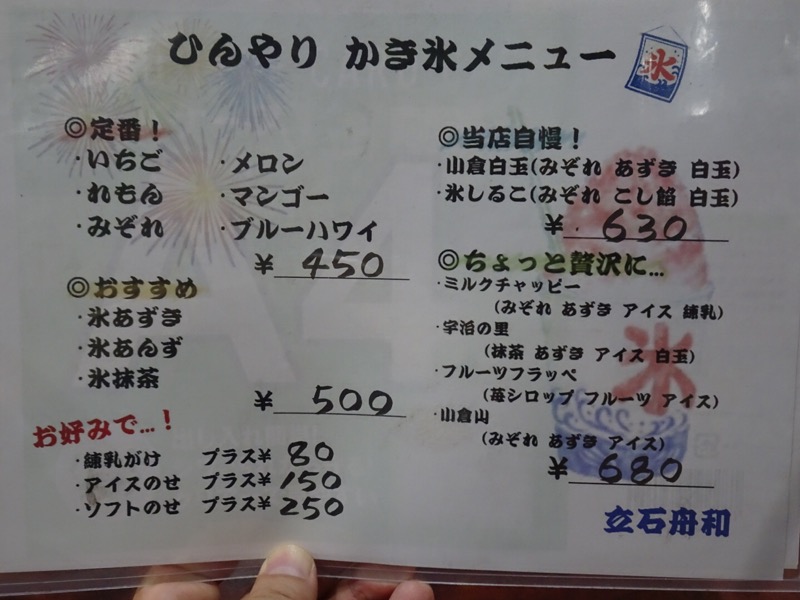 ひんやり かき氷メニュー
氷
◎定番！
・いちご ・メロン
・れもん ・マンゴー
・みぞれ ・ブルーハワイ
¥ 450
◎おすすめ
・氷あずき
・氷あんず
・氷抹茶
¥ 500
お好みで…！
・練乳がけ プラス¥ 80
・アイスのせ プラス¥ 150
・ソフトのせ プラス¥ 250
◎当店自慢！
・小倉白玉(みぞれ あずき 白玉)
・氷しるこ(みぞれ こし餡 白玉)
¥ 630
◎ちょっと贅沢に…
・ミルクチャッピー
(みぞれ あずき アイス 練乳)
・宇治の里
(抹茶 あずき アイス 白玉)
・フルーツフラッペ
(苺シロップ フルーツ アイス)
・小倉山
(みぞれ あずき アイス)
¥ 680
氷
立石舟和